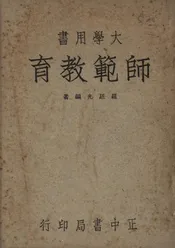 大學用書
師範教育
羅廷光編著
正中書局印行